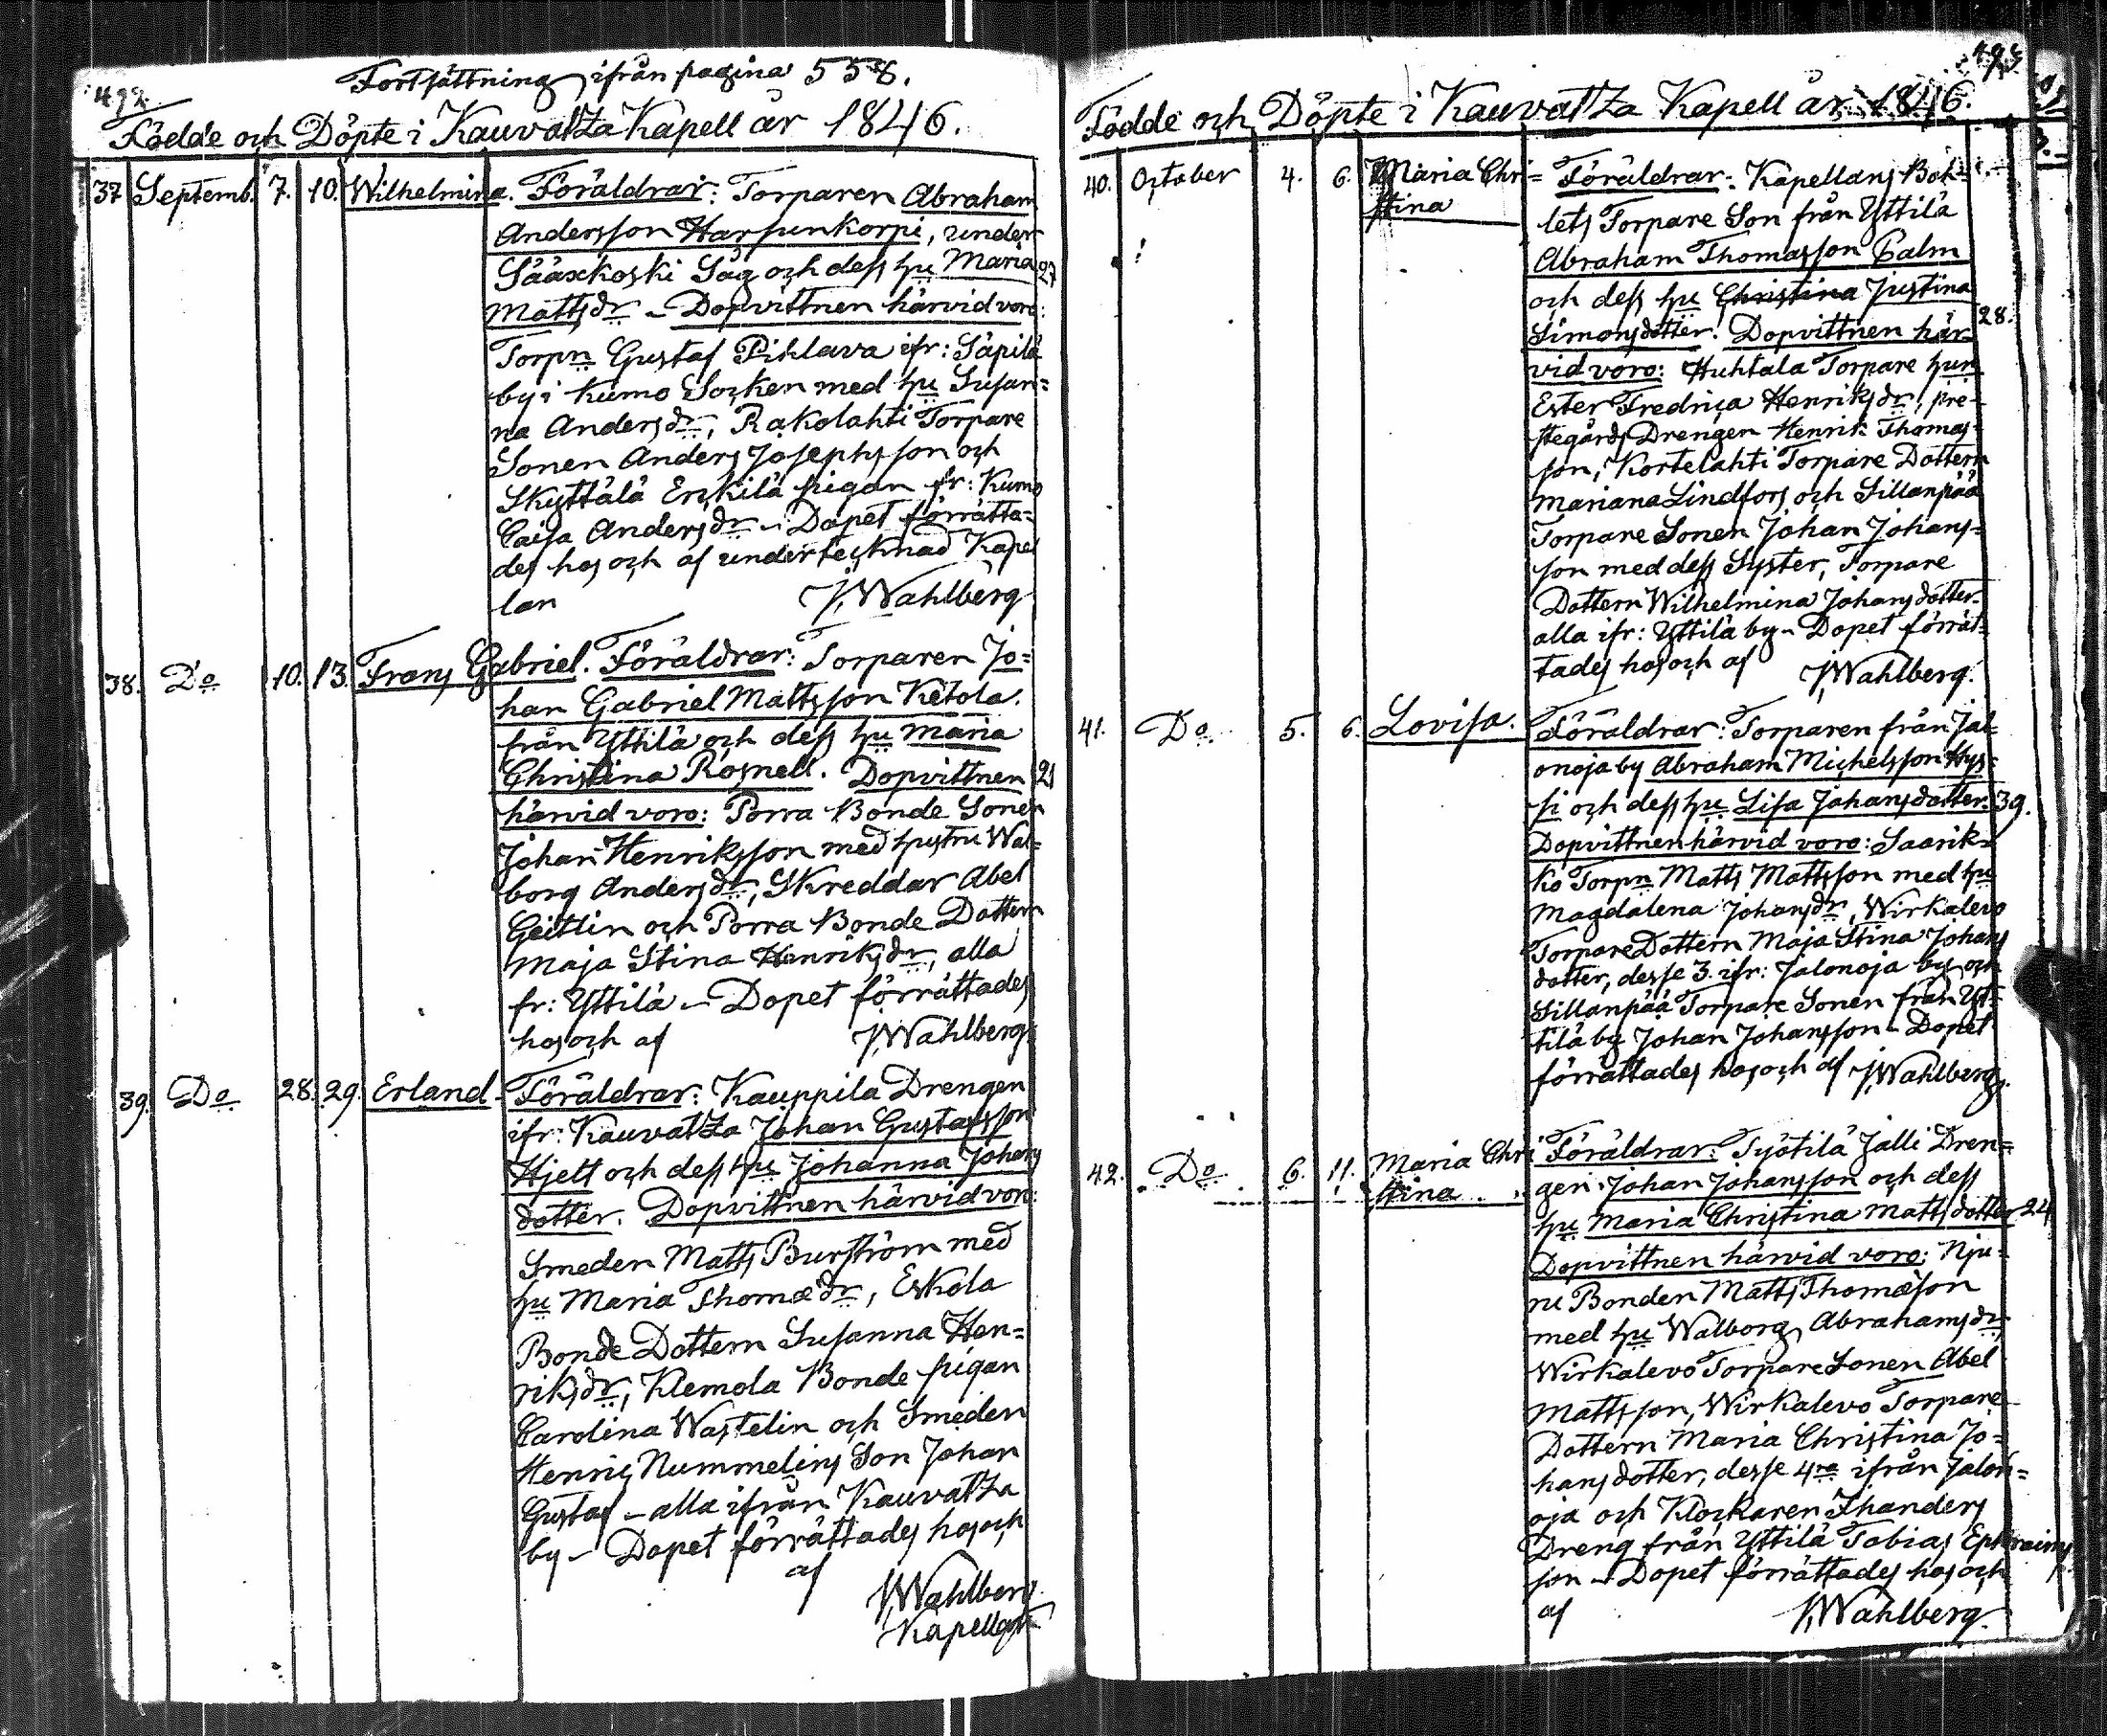 492.
Fortsättning ifrån pagina 558.
Födde och Döpte i Kauvatza Kapell år 1846.
37 Septemb. 7. 10. Wilhelmina. Föräldrar: Torparen Abraham
Andersson Harjunkorpi, under
Sääxkoski Såg och dess hu Maria 27
Mattsdr – Dopvittnen härvid voro:
Torpn Gustaf Piklava ifr: Säpilä
by i Kumo Socken med hu Susan=
na Andersdr, Rakolahti Torpare
Sonen Anders Josephsson och
Skyttälä Erkilä pigan fr: Kumo
Caisa Andersdr – Dopet förrätta=
des hos och af undertecknad Kapel
lan J, Wahlberg
38. Do 10. 13. Frans Gabriel. Föräldrar: Torparen Jo=
han Gabriel Mattsson Ketola.
från Yttilä och dess hu Maria
Christina Rosnell. Dopvittnen 21
härvid voro: Porra Bonde Sonen
Johan Henriksson med hustru Wal=
borg Andersdr, Skreddar Abel
Geitlin och Porra Bonde Dottern
Maja Stina Henriksdr, alla
fr: Yttilä – Dopet förrättades
hos och af J, Wahlberg.
39. Do 28. 29. Erland – Föräldrar: Kauppila Drengen
ifr: Kauvatza Johan Gustafsson
Hjelt och dess hu Johanna Johans
dotter. Dopvittnen härvid voro:
Smeden Matts Burström med
hu Maria Thomædr, Eskola
Bonde Dottern Susanna Hen=
riksdr, Klemola Bonde pigan
Carolina Wastelin och Smeden
Henric Nummelins Son Johan
Gustaf – alla ifrån Kauvatza
by – Dopet förrättades hos och
af J, Wahlberg.
Kapellan
493
Födde och Döpte i Kauvatza Kapell år 1846.
40. October 4. 6. Maria Chri= Föräldrar: Kapellans Bol=
stina lets Torpare Son från Yttilä
Abraham Thomasson Palm
och dess hu Christina Justina
Simonsdotter. Dopvittnen här= 28.
vid voro: Huhtala Torpare hun
Ester Fredrica Henriksdr, pre=
stegårds Drengen Henrik Thomas=
son, Kortelahti Torpare Dottern
Mariana Lindfors och Sillanpää
Torpare Sonen Johan Johans=
son med dess Syster, Torpare
Dottern Wilhelmina Johansdotter.
alla ifr: Yttilä by – Dopet förrät=
tades hos och af J, Wahlberg.
41. Do 5. 6. Lovisa. Föräldrar: Torparen från Jal=
onoja by Abraham Michelsson Hys=
si och dess hu Lisa Johansdotter. 39.
Dopvittnen härvid voro: Saarik=
ko Torpn Matts Mattsson med hu
Magdalena Johansdr, Wirkalevo
Torpare Dottern Maja Stina Johans
dotter, desse 3. ifr: Jalonoja by och
Sillanpää Torpare Sonen från Yt=
tilä by Johan Johansson – Dopet
förrättades hos och af J, Wahlberg.
42. Do 6. 11. Maria Chri Föräldrar: Työtilä Jalli Dren=
stina gen Johan Johansson och dess
hu Maria Christina Mattsdotter 24
Dopvittnen härvid voro: Nju=
ru Bonden Matts Thomæson
med hu Walborg Abrahamsdr
Wirkalevo Torpare Sonen Abel
Mattsson, Wirkalevo Torpare
Dottern Maria Christina Jo=
hansdotter, desse 4ra ifrån Jalon=
oja och Klockaren Ihanders
Dreng från Yttilä Tobias Ephraims
son – Dopet förrättades hos och
af J, Wahlberg.